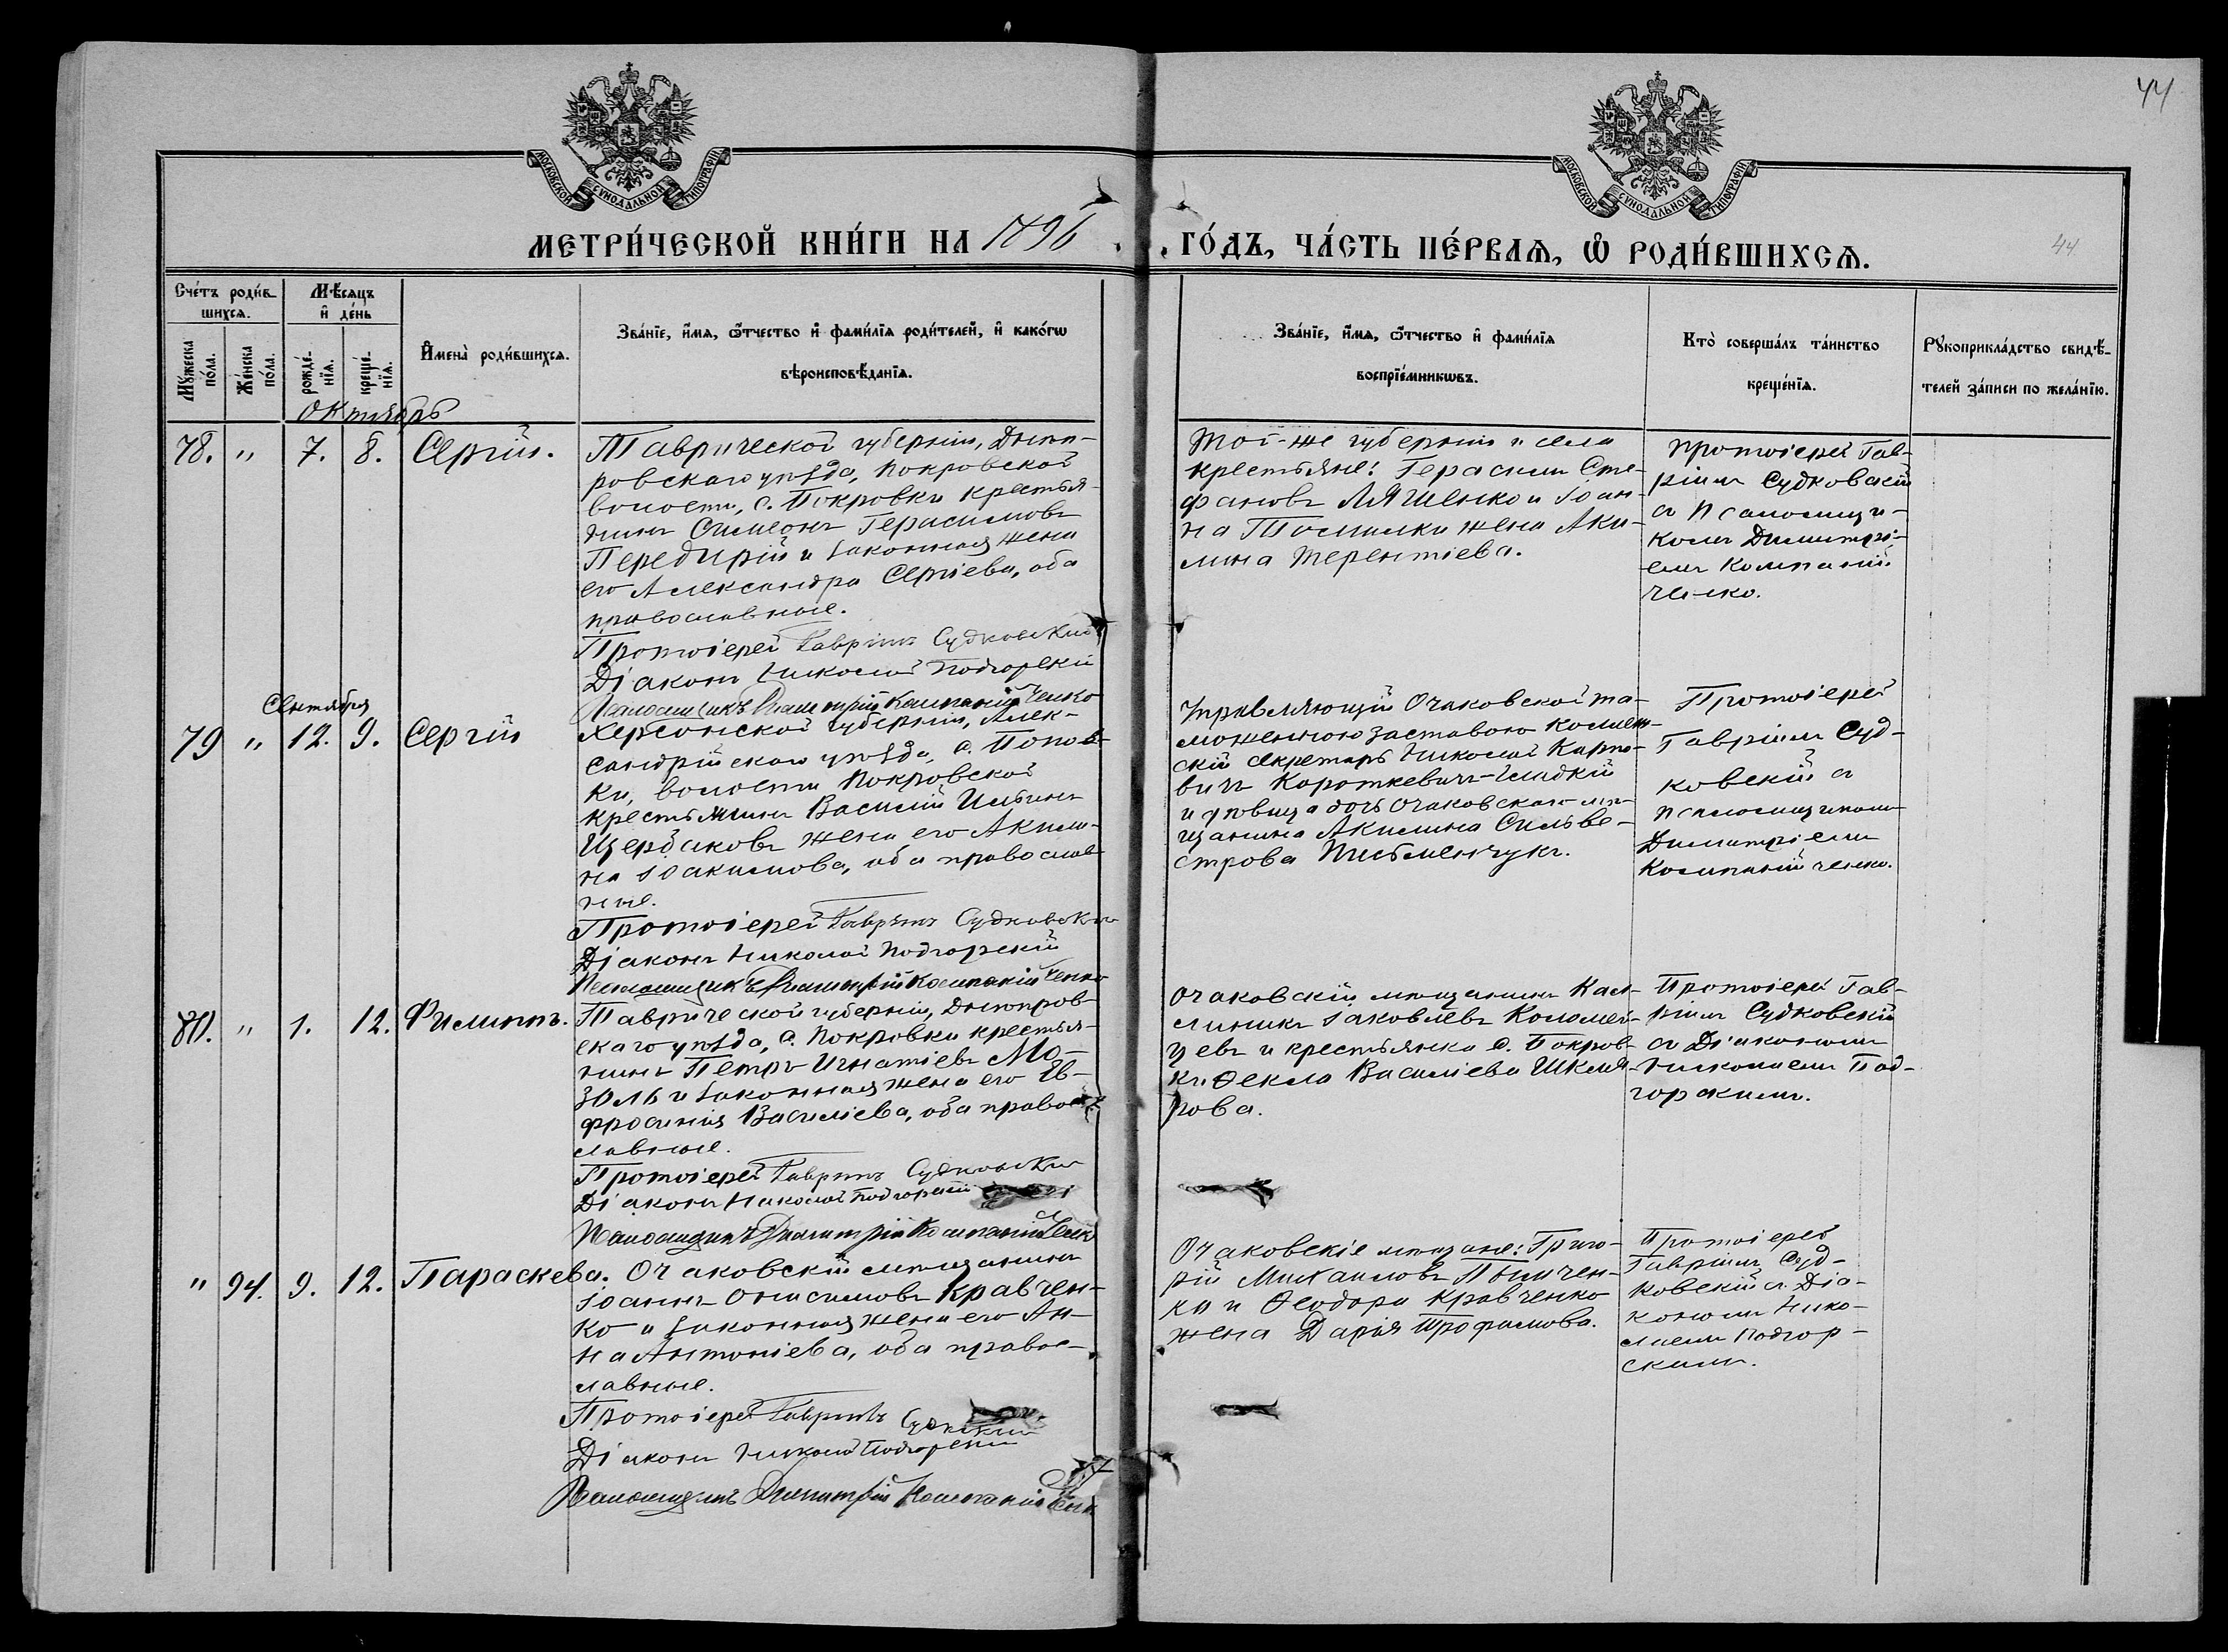 44
МОСКОВСКОЙ СѴНОДАЛЬНОЙ ТИПОГРАФІИ
МОСКОВСКОЙ СѴНОДАЛЬНОЙ ТИПОГРАФІИ
МЕТРИ́ЧЕСКОЙ КНИ́ГИ НА 1896 . . ГО́ДЪ, ЧА́СТЬ ПЕ́РВАѦ, Ѡ РОДИ́ВШИХСѦ.
44
Сче́тъ роди́в-
шихсѧ.
Мꙋ́жеска по́ла.
Же́нска по́ла.
Мѣ́сѧцъ
и҆ де́нь
рожде́-
нїѧ.
креще́-
нїѧ.
И҆мена̀ роди́вшихсѧ.
Зва́нїе, и҆́мѧ, ѻ҆́тчество и҆ фами́лїѧ роди́телей, и҆ како́гѡ
вѣроисповѣ́данїѧ.
Зва́нїе, и҆́мѧ, ѻ҆́тчество и҆ фами́лїѧ
воспрїе́мникѡвъ.
Кто̀ соверша́лъ та́инство
креще́нїѧ.
Рꙋкоприкла́дство свидѣ́-
телей за́писи по жела́нїю.
Октябрь
78. " 7. 8. Сергій.
Таврической губерніи, Днѣп-
ровскаго уѣзда, Покровской
волости, с. Покровки крестья-
нинъ Симеонъ Герасимовъ
Передирій и законная жена
его Александра Сергіева, оба
православные.
Протоіерей Гавріилъ Судковскій
Діаконъ Николай Подгорскій
Псаломщикъ Димитрій Компанійченко
Той-же губерніи и села
крестьяне: Герасимъ Сте-
фановъ Ляшенко и Іоан-
на Томилки жена Аки-
лина Терентіева.
Протоіерей Гав-
ріилъ Судковскій
съ псаломщи-
комъ Димитрі-
емъ Компаній-
ченко.
Сентября
79 " 12. 9. Сергій
Херсонской губерніи, Алек-
сандрійскаго уѣзда, с. Попов-
ки, волости Покровской
крестьянинъ Василій Ильинъ
Щербаковъ жена его Акили-
на Іоакимова, оба православ-
ные.
Протоіерей Гавріилъ Судковскій
Діаконъ Николай Подгорскій
Псаломщикъ Димитрій Компанійченко
Управляющій Очаковской та-
моженною заставою Коллеж-
скій секретарь Николай Карпо-
вичъ Короткевичъ-Гладкій
и дѣвица дочь Очаковскаго мѣ-
щанина Акилина Сильве-
строва Письменчукъ.
Протоіерей
Гавріилъ Суд-
ковскій съ
псаломщикомъ
Димитріемъ
Компанійченко.
80. " 1. 12. Филиппъ.
Таврической губерніи, Днѣпров-
скаго уѣзда, с. Покровки крестья-
нинъ Петръ Игнатіевъ Мо-
золь и законная жена его Ев-
фросинія Василіева, оба право-
славные.
Протоіерей Гавріилъ Судковскій
Діаконъ Николай Подгорскій
Псаломщикъ Димитрій Компанійченко
Очаковскій мѣщанинъ Кал-
линикъ Іаковлевъ Коломей-
цевъ и крестьянка с. Покров-
ки Ѳекла Василіева Шкля-
рова.
Протоіерей Гав-
ріилъ Судковскій
съ Діакономъ
Николаемъ Под-
горскимъ.
" 94. 9. 12. Параскева.
Очаковскій мѣщанинъ
Іоаннъ Онисимовъ Кравчен-
ко и законная жена его Ан-
на Антоніева, оба правос-
лавные.
Протоіерей Гавріилъ Судковскій
Діаконъ Николай Подгорскій
Псаломщикъ Димитрій Компанійченко
Очаковскіе мѣщане: Григо-
рій Михаиловъ
ко и Ѳеодора Кравченко
жена Дарія Трофимова.
Протоіерей
Гавріилъ Суд-
ковскій съ Діа-
кономъ Нико-
лаемъ Подгор-
скимъ.